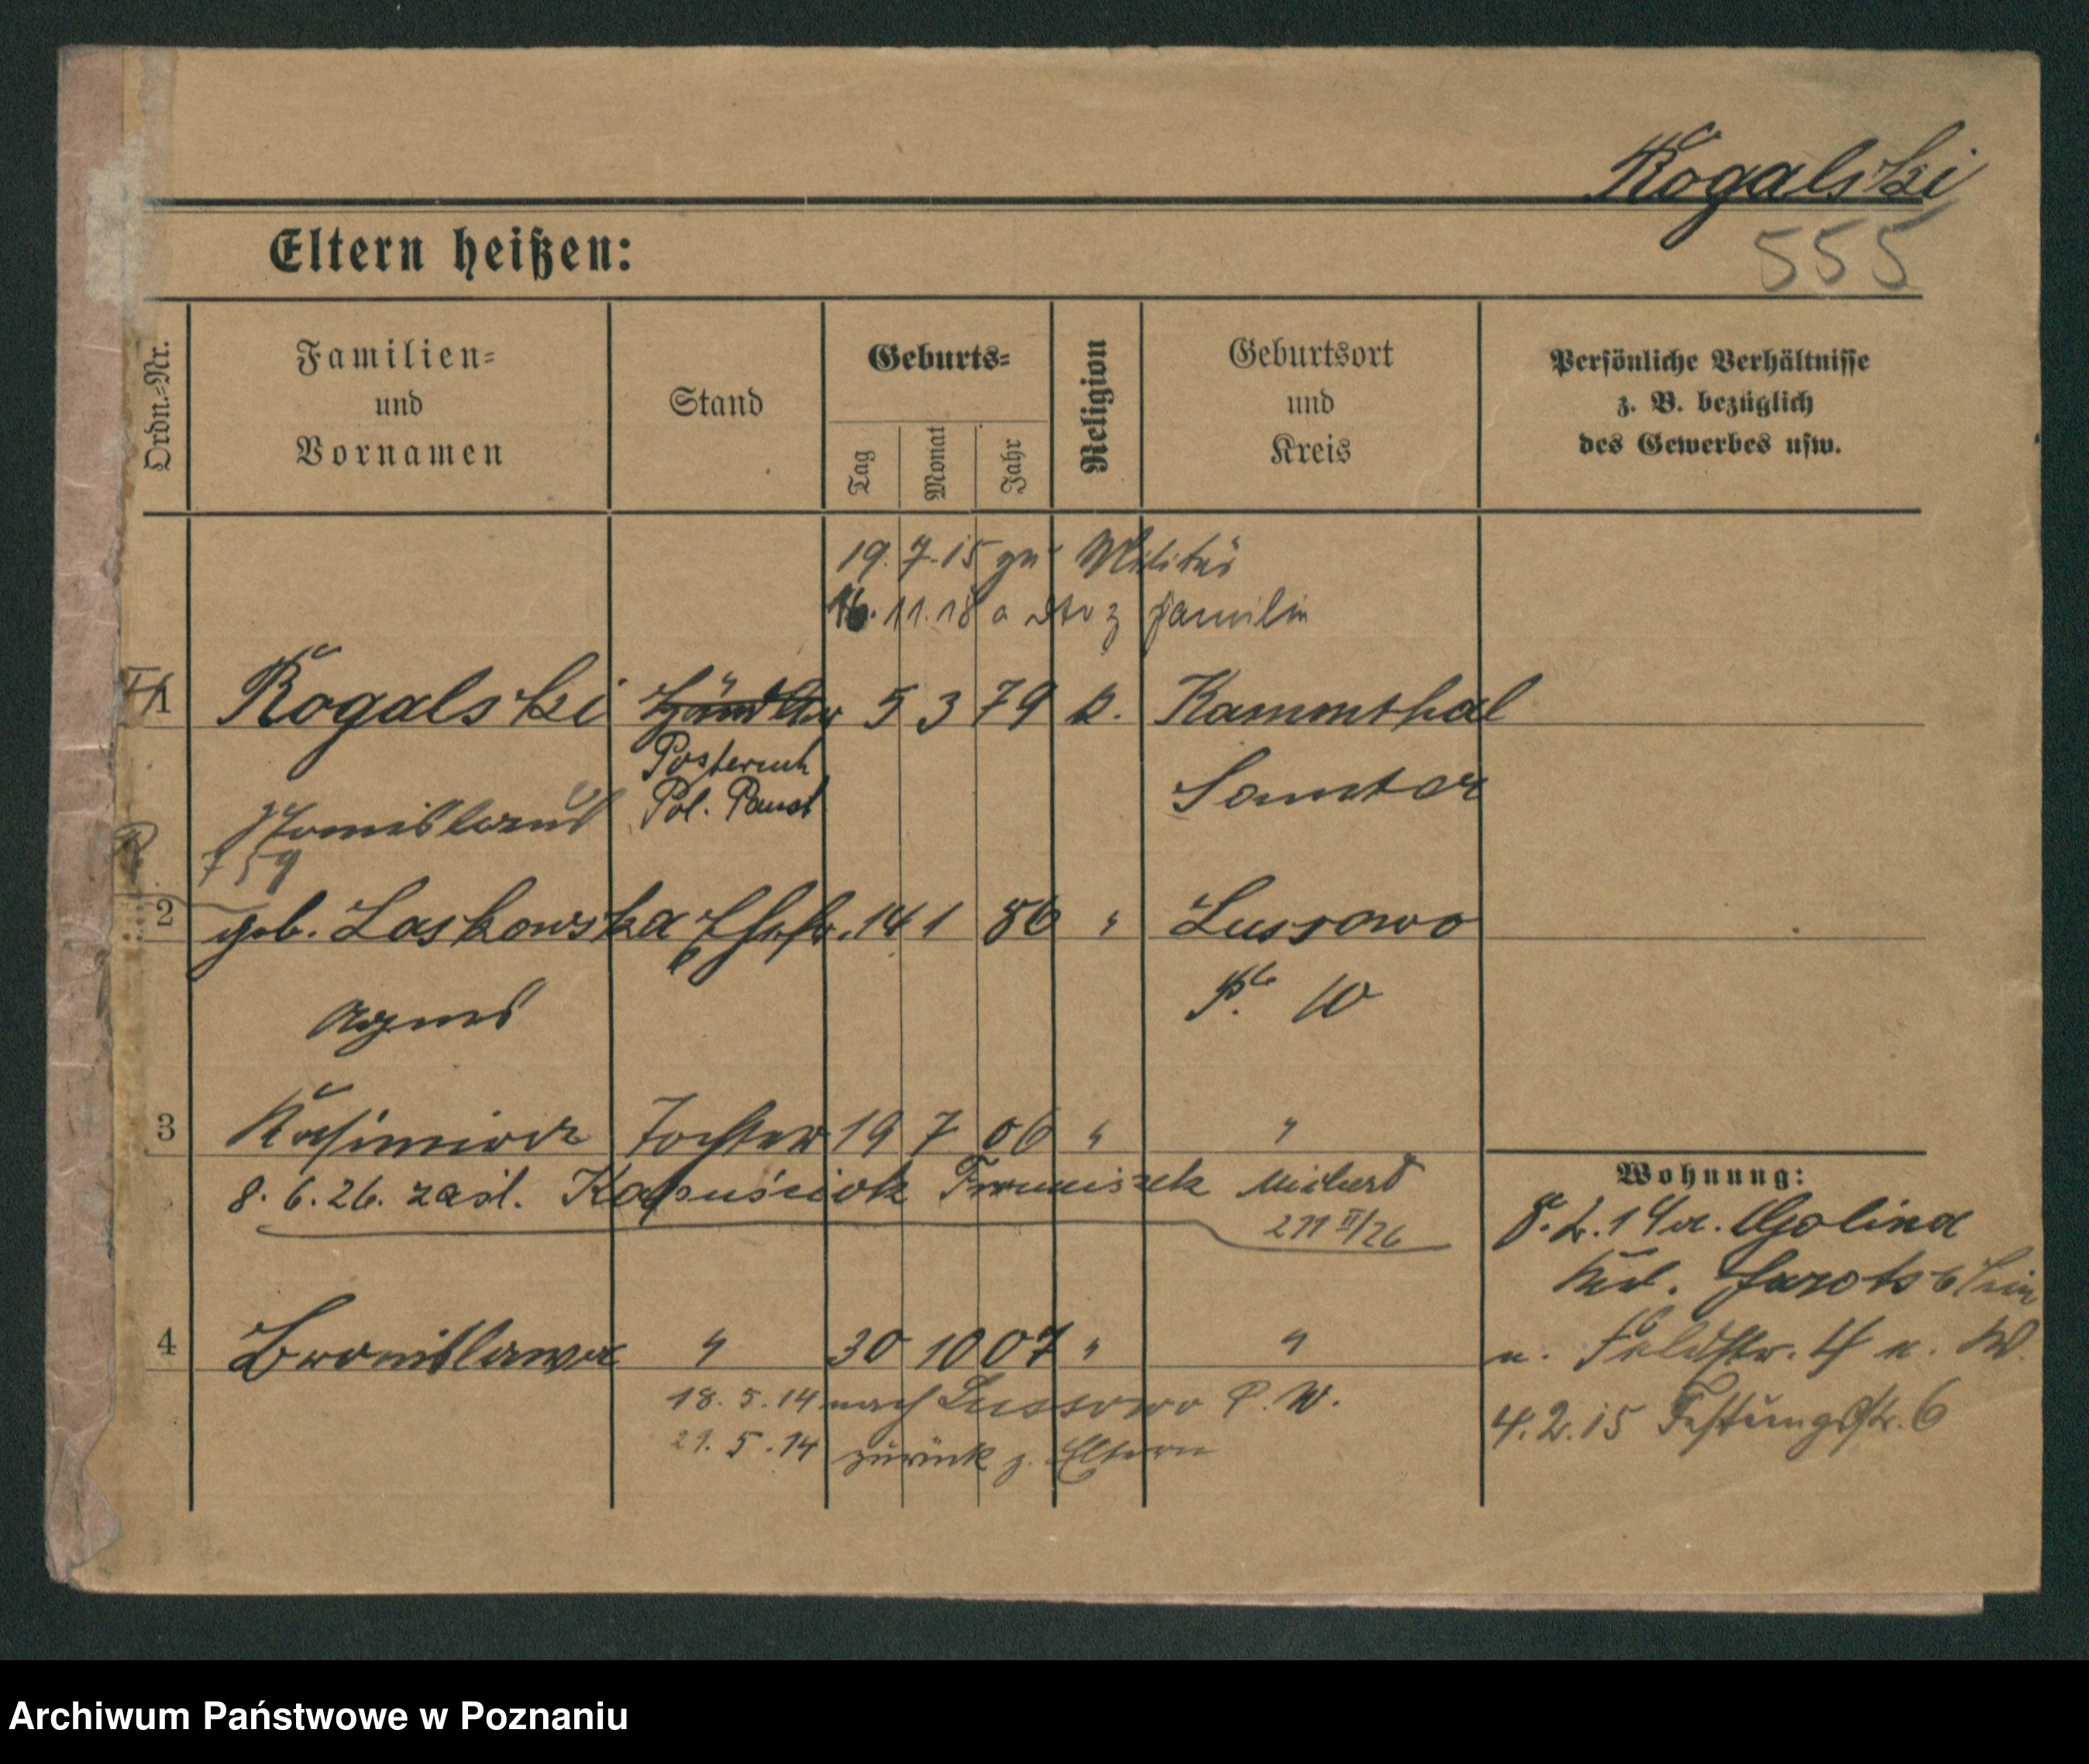 Rogalski
555
Eltern heißen:
Ordn.=Nr.
Familien=
und
Vornamen
Stand
Geburts=
Tag
Monat
Jahr
Religion
Geburtsort
und
Kreis
Persönliche Verhältnisse
z. B. bezüglich
des Gewerbes usw.
19. 7. 15 zu Militär
16. 11. 18 a z Familie
1 Rogalski Händler 5 3 79 k. Kammthal
Posterunk
Pol. Państ
Samter
759
2 geb. Laskowska Ehefr. 14 1 86 " Lussowo
Agnes
P. W
3 Kasimiera Tochter 19 7 06 " "
8. 6. 26. zaśl. Kapuściak Franciszek
211 II/26
4 Bronislawa " 30 10 07 " "
18. 5. 14 nach Lussowo P. W.
21. 5. 14 zurück z. Eltern
Wohnung:
8. 2. 14 a. Golina
Jarotschin
n. Feldstr. 4 n. W.
4. 2. 15 Festungstr. 6
Archiwum Państwowe w Poznaniu